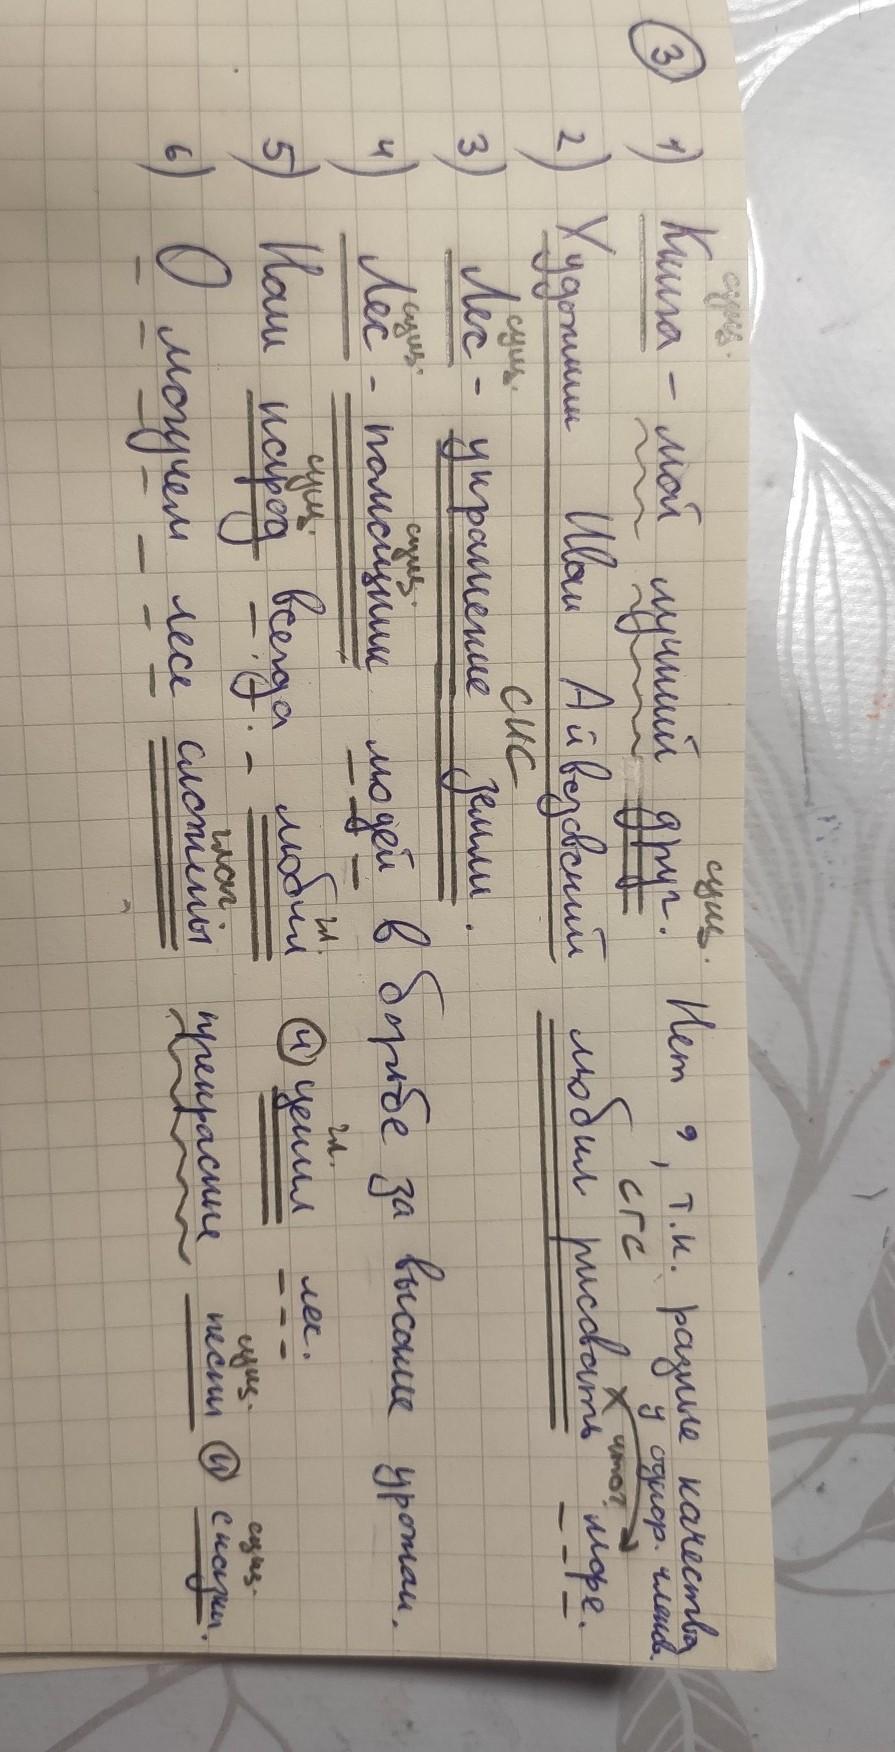 3
сущ. сущ.
1) Книга - мой лучший друг. Нет , т.к. разные качества
у однор. членов.
СГС
что?
2) Художник Иван Айвазовский любил рисовать море.
сущ. СИС
3) Лес - украшение земли.
сущ. сущ.
4) Лес - помощник людей в борьбе за высокие урожаи.
сущ. гл. гл.
5) Наш народ всегда любил и ценил лес.
глаг. сущ. сущ.
6) О могучем лесе сложены прекрасные песни и сказки.